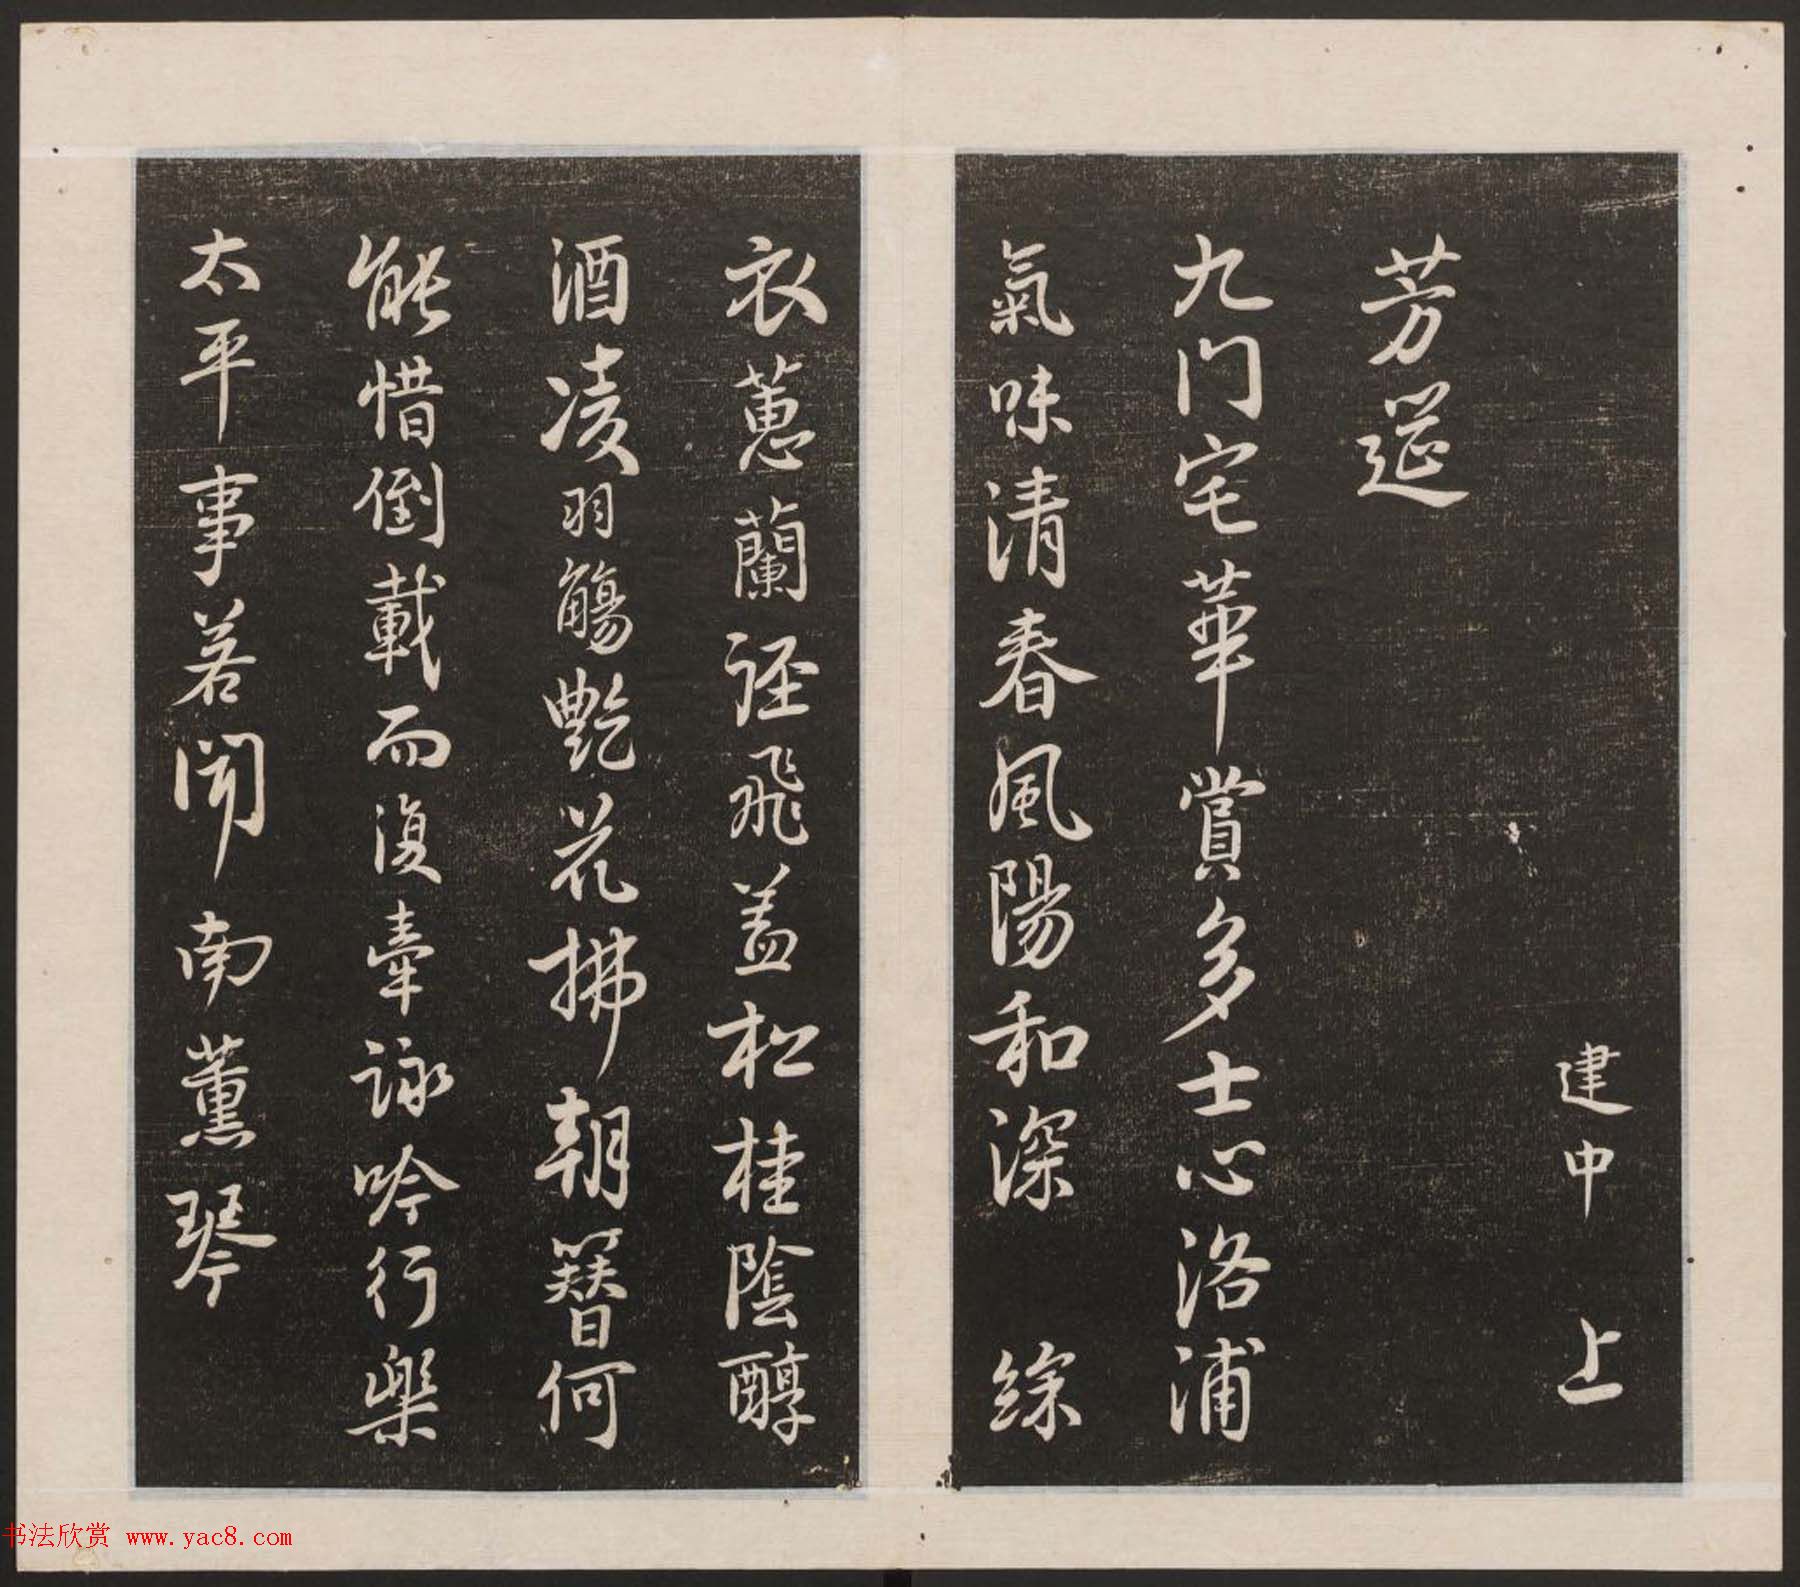 建中 上
芳筵
九門宅華賞多士心洛浦
氣味清春風陽和深 綜
衣蕙蘭迳飛蓋松桂陰醇
酒凌羽觴艷花拂朝簪何
能惜倒載而復牽詠吟行樂
太平事若聞南薰琴
书法欣赏 www.yac8.com